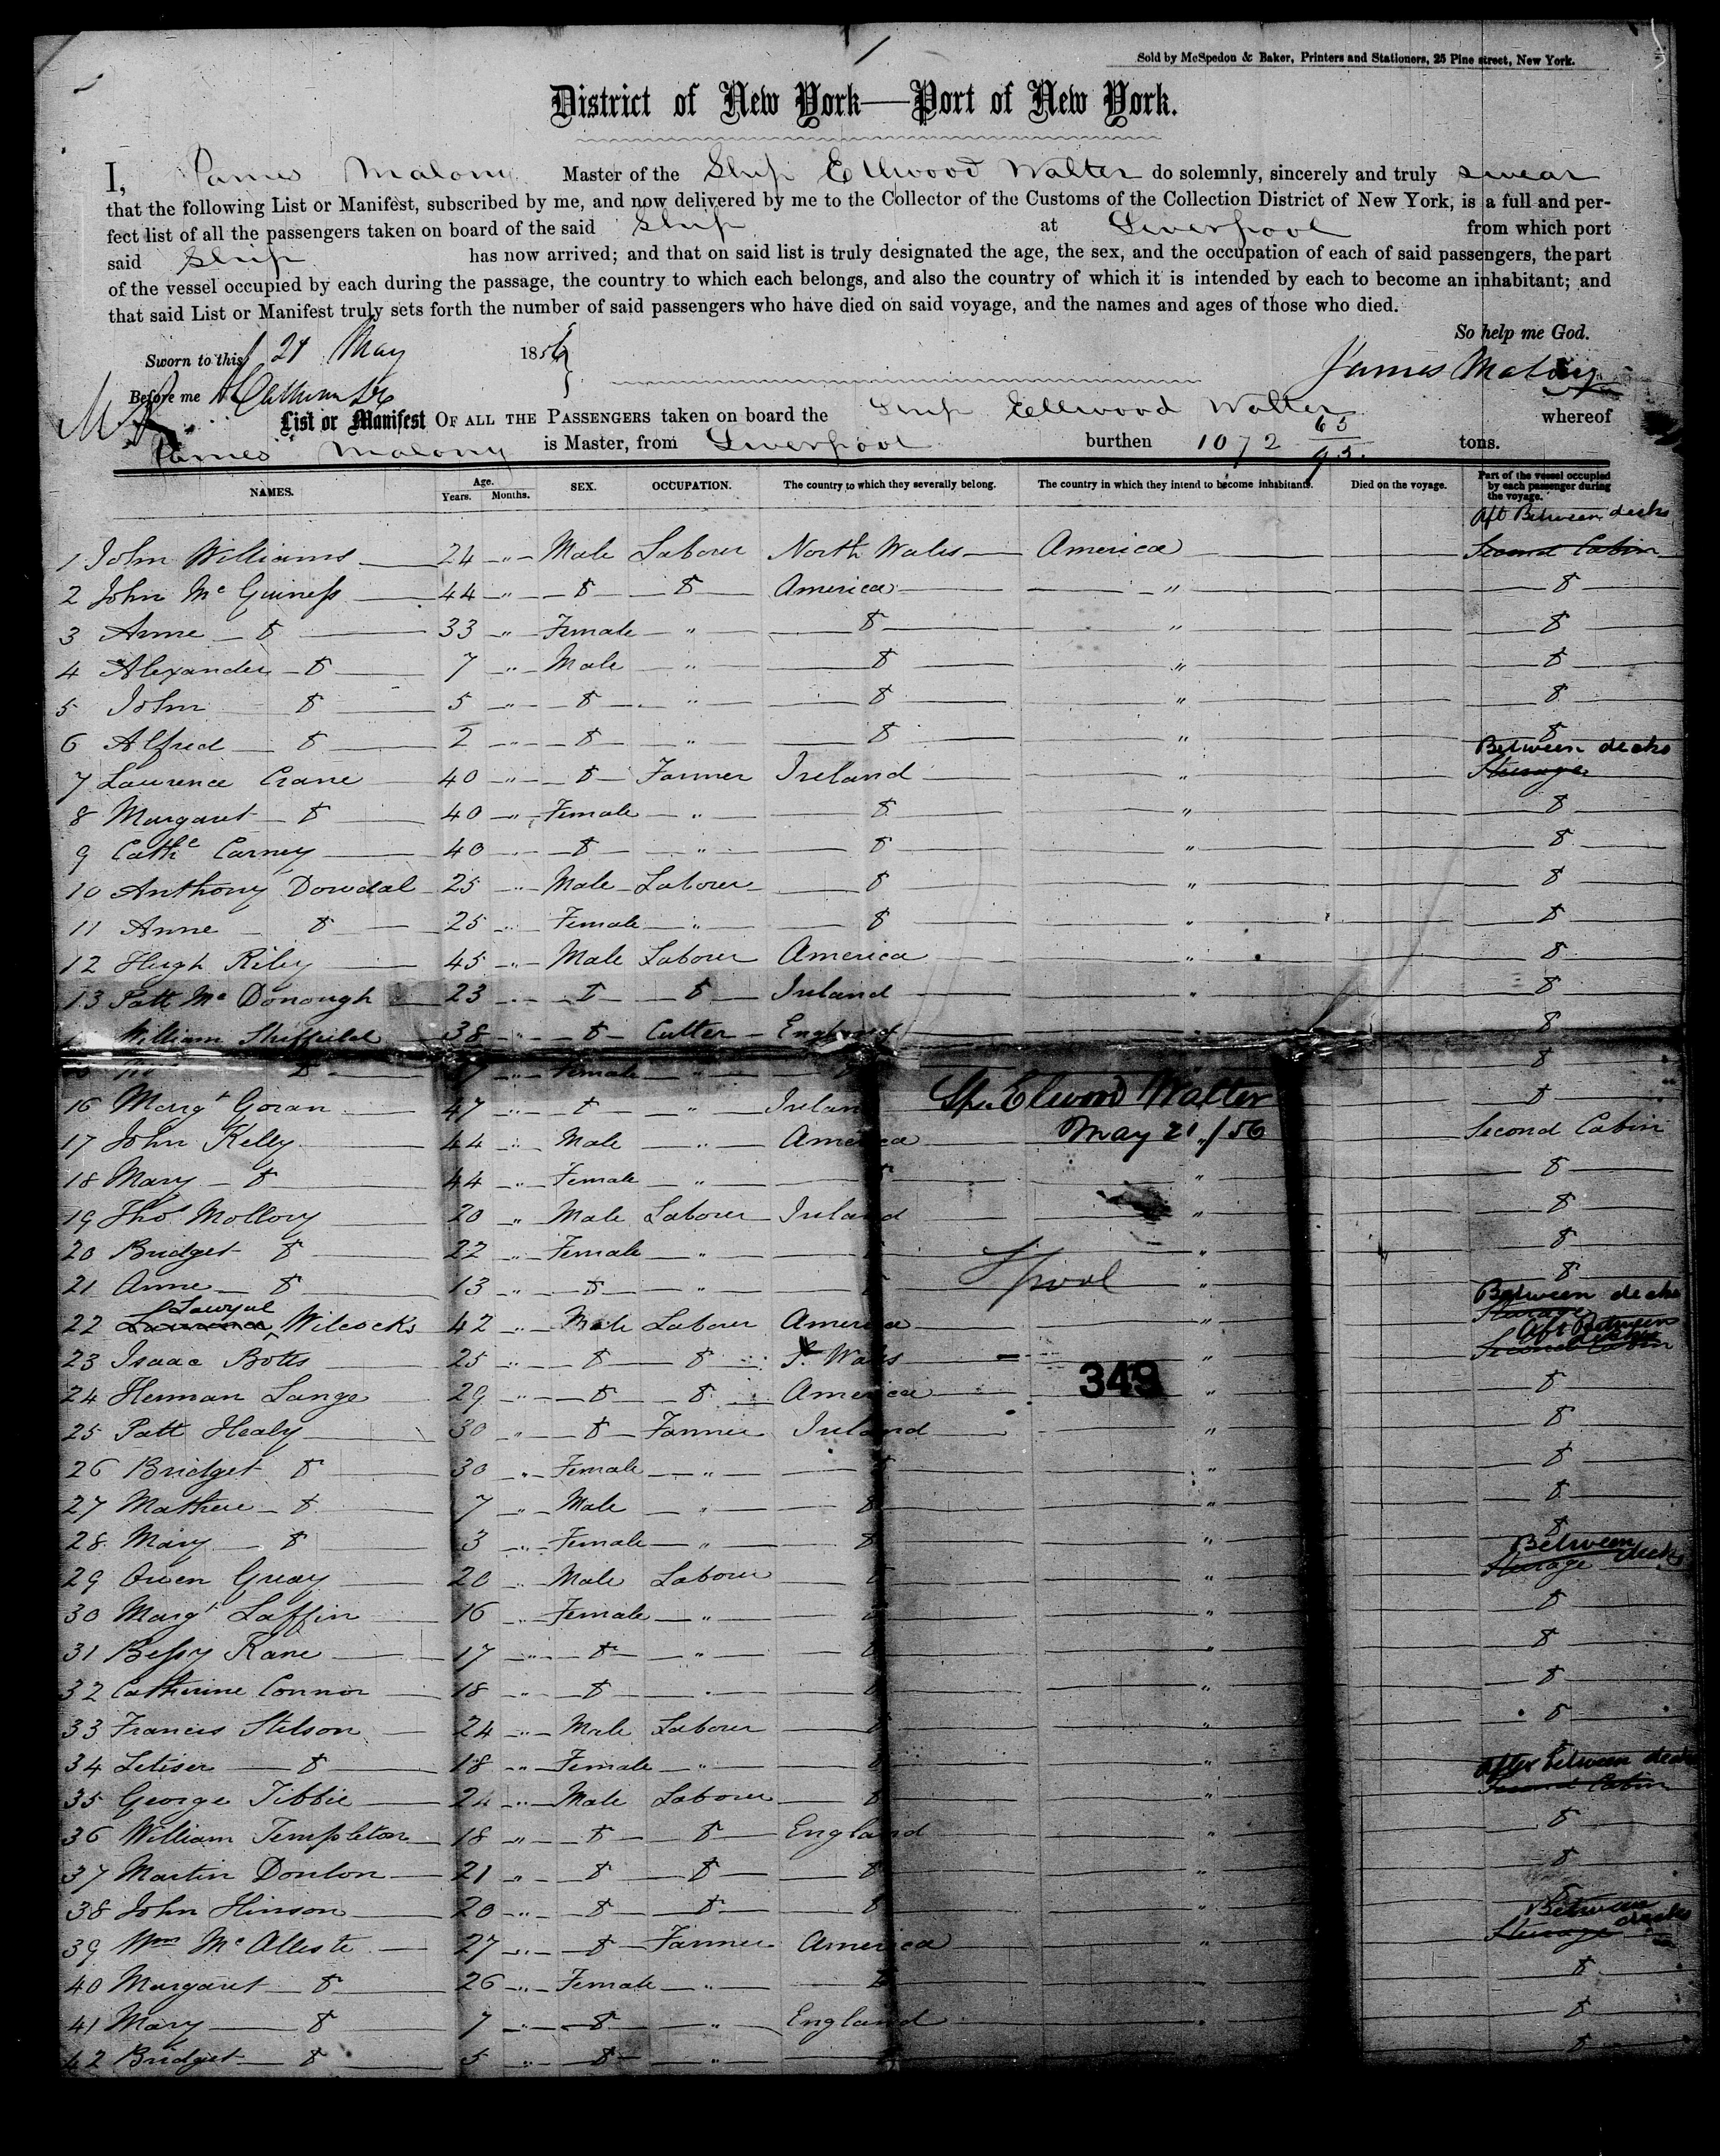 Sold by McSpedon & Baker, Printers and Stationers, 25 Pine street, New York.
District of New York—Port of New York.
I, James Malony Master of the Ship Ellwood Walter do solemnly, sincerely and truly swear
that the following List or Manifest, subscribed by me, and now delivered by me to the Collector of the Customs of the Collection District of New York, is a full and per-
fect list of all the passengers taken on board of the said Ship at Liverpool from which port
said Ship has now arrived; and that on said list is truly designated the age, the sex, and the occupation of each of said passengers, the part
of the vessel occupied by each during the passage, the country to which each belongs, and also the country of which it is intended by each to become an inhabitant; and
that said List or Manifest truly sets forth the number of said passengers who have died on said voyage, and the names and ages of those who died.
So help me God.
Sworn to this 21 May 1856
James Malony
Before me
List or Manifest OF ALL THE PASSENGERS taken on board the Ship Ellwood Walter whereof
James Malony is Master, from Liverpool burthen 1072 65/95 tons.
NAMES. Age. Years. Months. SEX. OCCUPATION. The country to which they severally belong. The country in which they intend to become inhabitants. Died on the voyage. Part of the vessel occupied by each passenger during the voyage.
Aft Between decks
1 John Williams 24 " Male Laborer North Wales America Second Cabin
2 John Mc Guiness 44 " do do America " do
3 Anne do 33 " Female " do " do
4 Alexander do 7 " Male " do " do
5 John do 5 " do " do " do
6 Alfred do 2 " do " do " do
Between decks
7 Lawrence Crane 40 " do Farmer Ireland " Steerage
8 Margaret do 40 " Female " do " do
9 Cathe Carney 40 " do " do " do
10 Anthony Dowdal 25 " Male Laborer do " do
11 Anne do 25 " Female " do " do
12 Hugh Riley 45 " Male Laborer America " do
13 Patt Mc Donough 23 " do do Ireland " do
William Sheffield 38 " do Cutter England " do
do " Female " do
16 Margt Goran 47 " do " Ireland do
Sp. Elwood Walter
17 John Kelly 44 " Male " America Second Cabin
May 21/56
18 Mary do 44 " Female " do " do
19 Thos Mollory 20 " Male Laborer Ireland " do
20 Bridget do 22 " Female " do " do
21 Anne do 13 " do " do " do
Lpool
Between decks
22 Lawrence Wilcocks 42 " Male Laborer America " Steerage
Aft Between decks
23 Isaac Botts 25 " do do Wales " Second Cabin
349
24 Herman Lange 29 " do do America " do
25 Patt Healy 30 " do Farmer Ireland " do
26 Bridget do 30 " Female " do " do
27 Mathew do 7 " Male " do " do
28 Mary do 3 " Female " do " do
Between decks
29 Owen Gray 20 " Male Laborer do " Steerage
30 Margt Laffin 16 " Female " do " do
31 Bessy Kane 17 " do " do " do
32 Catherine Connor 18 " do " do " do
33 Francis Stilson 24 " Male Laborer do " do
34 Letiser do 18 " Female " do " do
After between decks
35 George Tibbie 24 " Male Laborer do " Second Cabin
36 William Templeton 18 " do do England " do
37 Martin Donlon 21 " do do do " do
38 John Hinson 20 " do do do " do
Between decks
39 Wm Mc Alleste 27 " do Farmer America " Steerage
40 Margaret do 26 " Female " do " do
41 Mary do 7 " do " England " do
42 Bridget do 5 " do " do " do